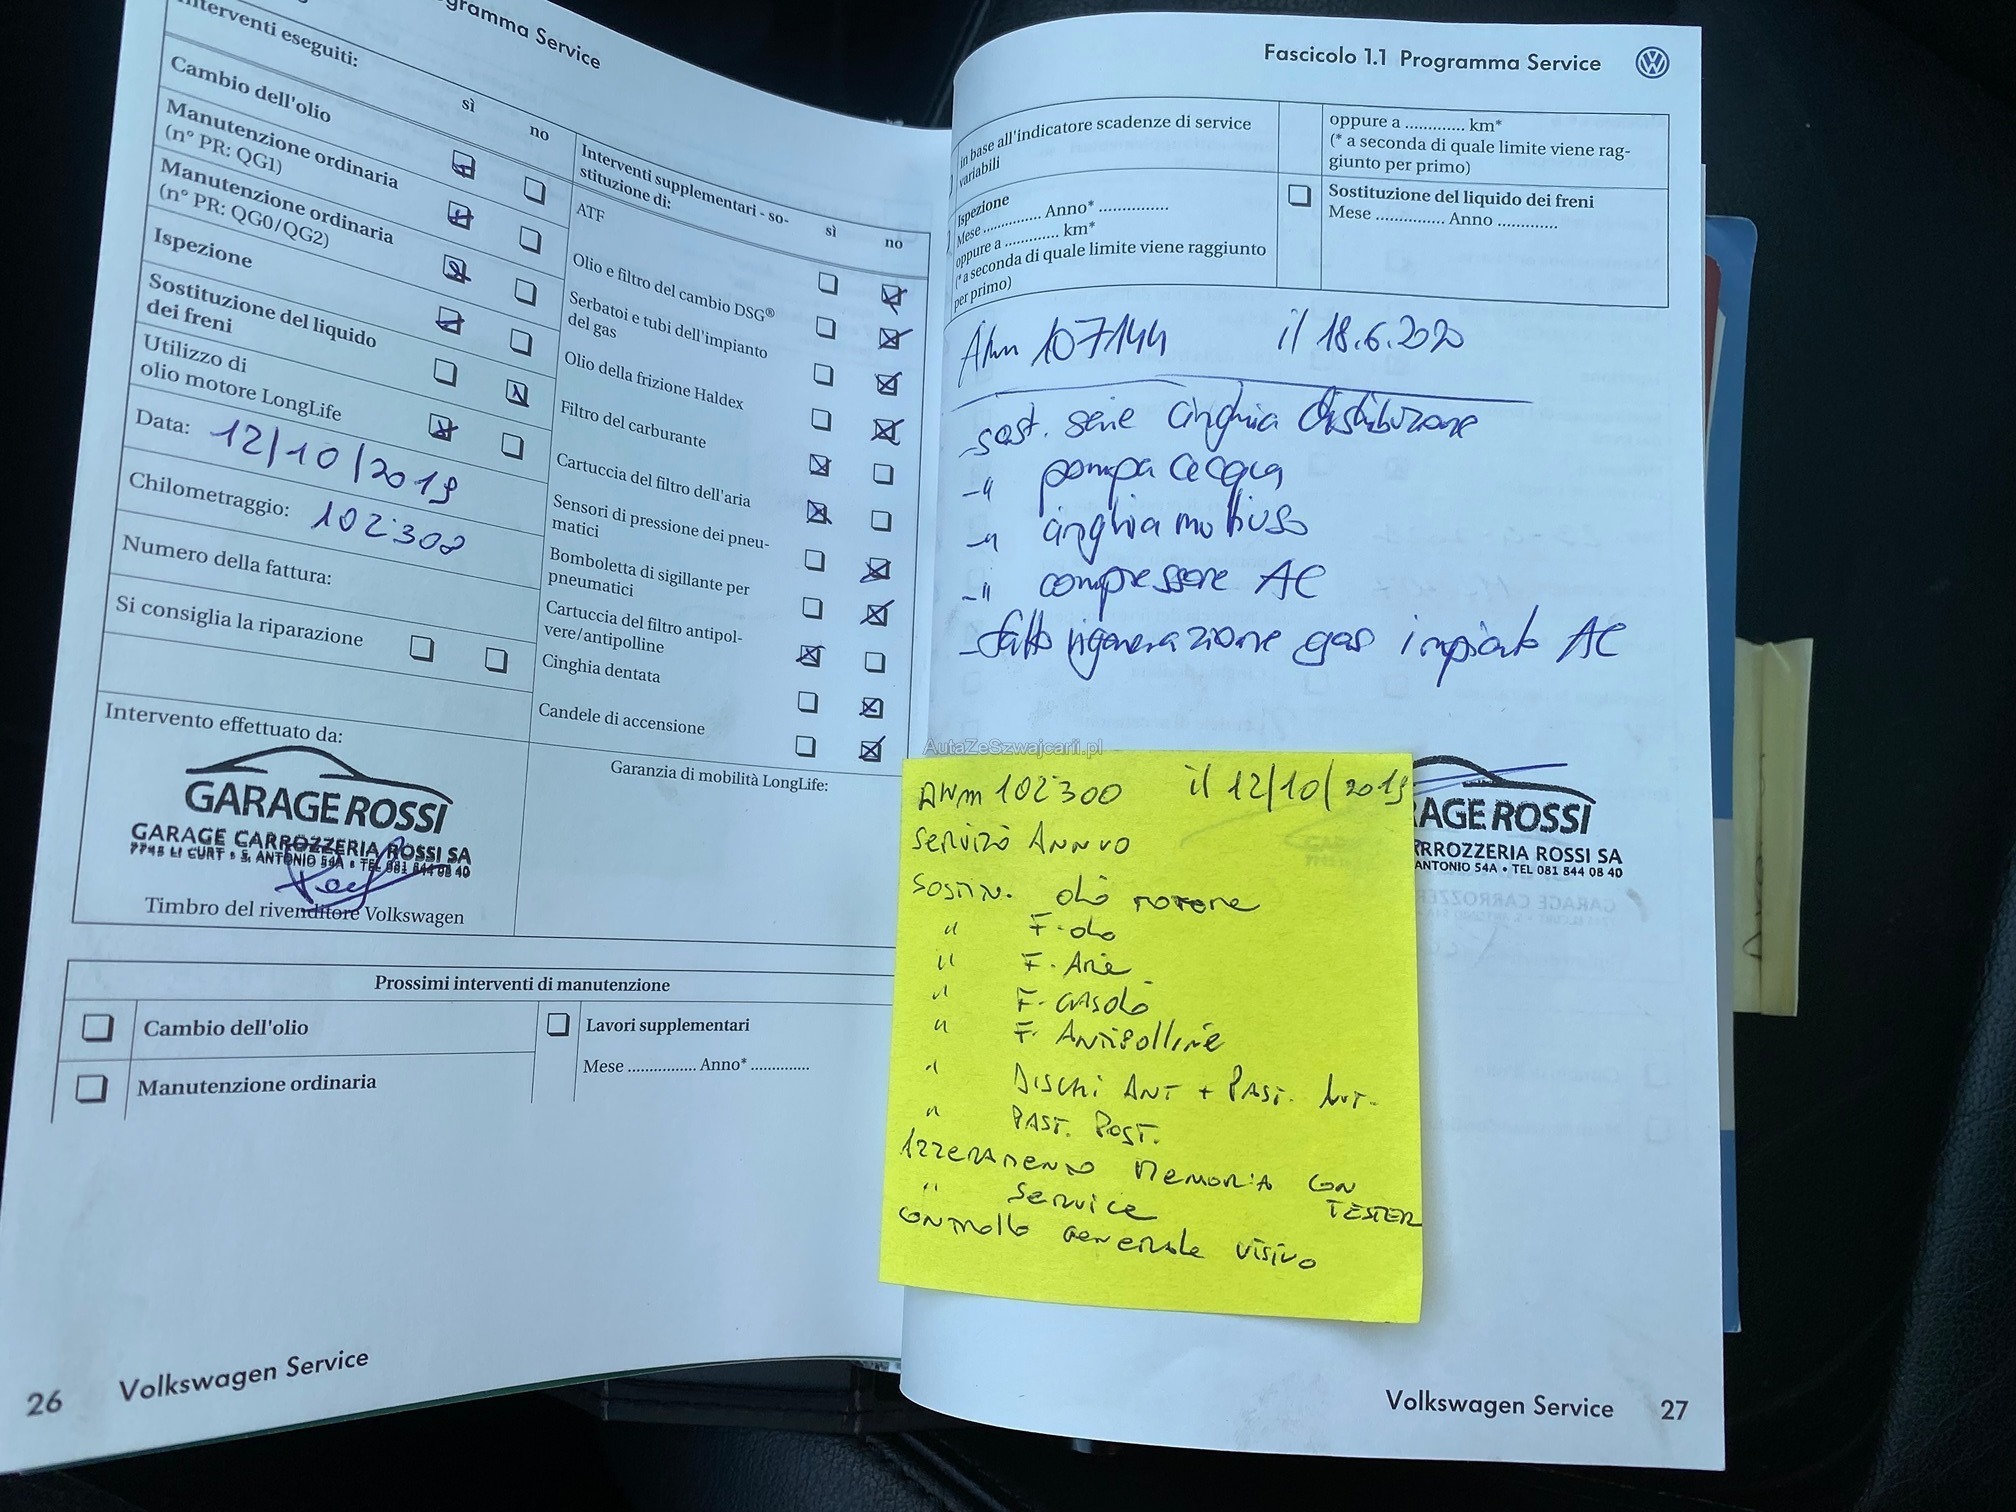 ogramma Service
Interventi eseguiti:
sì no
Cambio dell'olio
Manutenzione ordinaria
(n° PR: QG1)
Manutenzione ordinaria
(n° PR: QG0/QG2)
Ispezione
Sostituzione del liquido
dei freni
Utilizzo di
olio motore LongLife
Data: 12/10/2019
Chilometraggio: 102'308
Numero della fattura:
Si consiglia la riparazione
Interventi supplementari - so-
stituzione di:
sì no
ATF
Olio e filtro del cambio DSG®
Serbatoi e tubi dell'impianto
del gas
Olio della frizione Haldex
Filtro del carburante
Cartuccia del filtro dell'aria
Sensori di pressione dei pneu-
matici
Bomboletta di sigillante per
pneumatici
Cartuccia del filtro antipol-
vere/antipolline
Cinghia dentata
Candele di accensione
Intervento effettuato da:
GARAGE ROSSI
GARAGE CARROZZERIA ROSSI SA
7745 LI CURT • S. ANTONIO 54A • TEL 081 844 08 40
Timbro del rivenditore Volkswagen
Garanzia di mobilità LongLife:
Prossimi interventi di manutenzione
Cambio dell'olio
Manutenzione ordinaria
Lavori supplementari
Mese ................ Anno* ..............
26 Volkswagen Service
Fascicolo 1.1 Programma Service
in base all'indicatore scadenze di service
variabili
Ispezione
Mese .............. Anno* ................
oppure a ............. km*
(* a seconda di quale limite viene raggiunto
per primo)
oppure a ............. km*
(* a seconda di quale limite viene rag-
giunto per primo)
Sostituzione del liquido dei freni
Mese ............... Anno .............
107144 il 18.6.2020
- sost. serie cinghia distribuzione
- " pompa acqua
- " cinghia
- " compressore AC
- fatto rigenerazione gas impianto AC
AutaZeSzwajcarii.pl
AGE ROSSI
RROZZERIA ROSSI SA
ANTONIO 54A • TEL 081 844 08 40
102'300 il 12/10/2019
Servizio Annuo
Sostit. olio motore
" F. olio
" F. Aria
" F. Gasolio
" F. Antipolline
" Dischi Ant + Past. Ant.
" Past. Post.
Azzeramento memoria con
TESTER
" Service
controllo generale visivo
Volkswagen Service 27